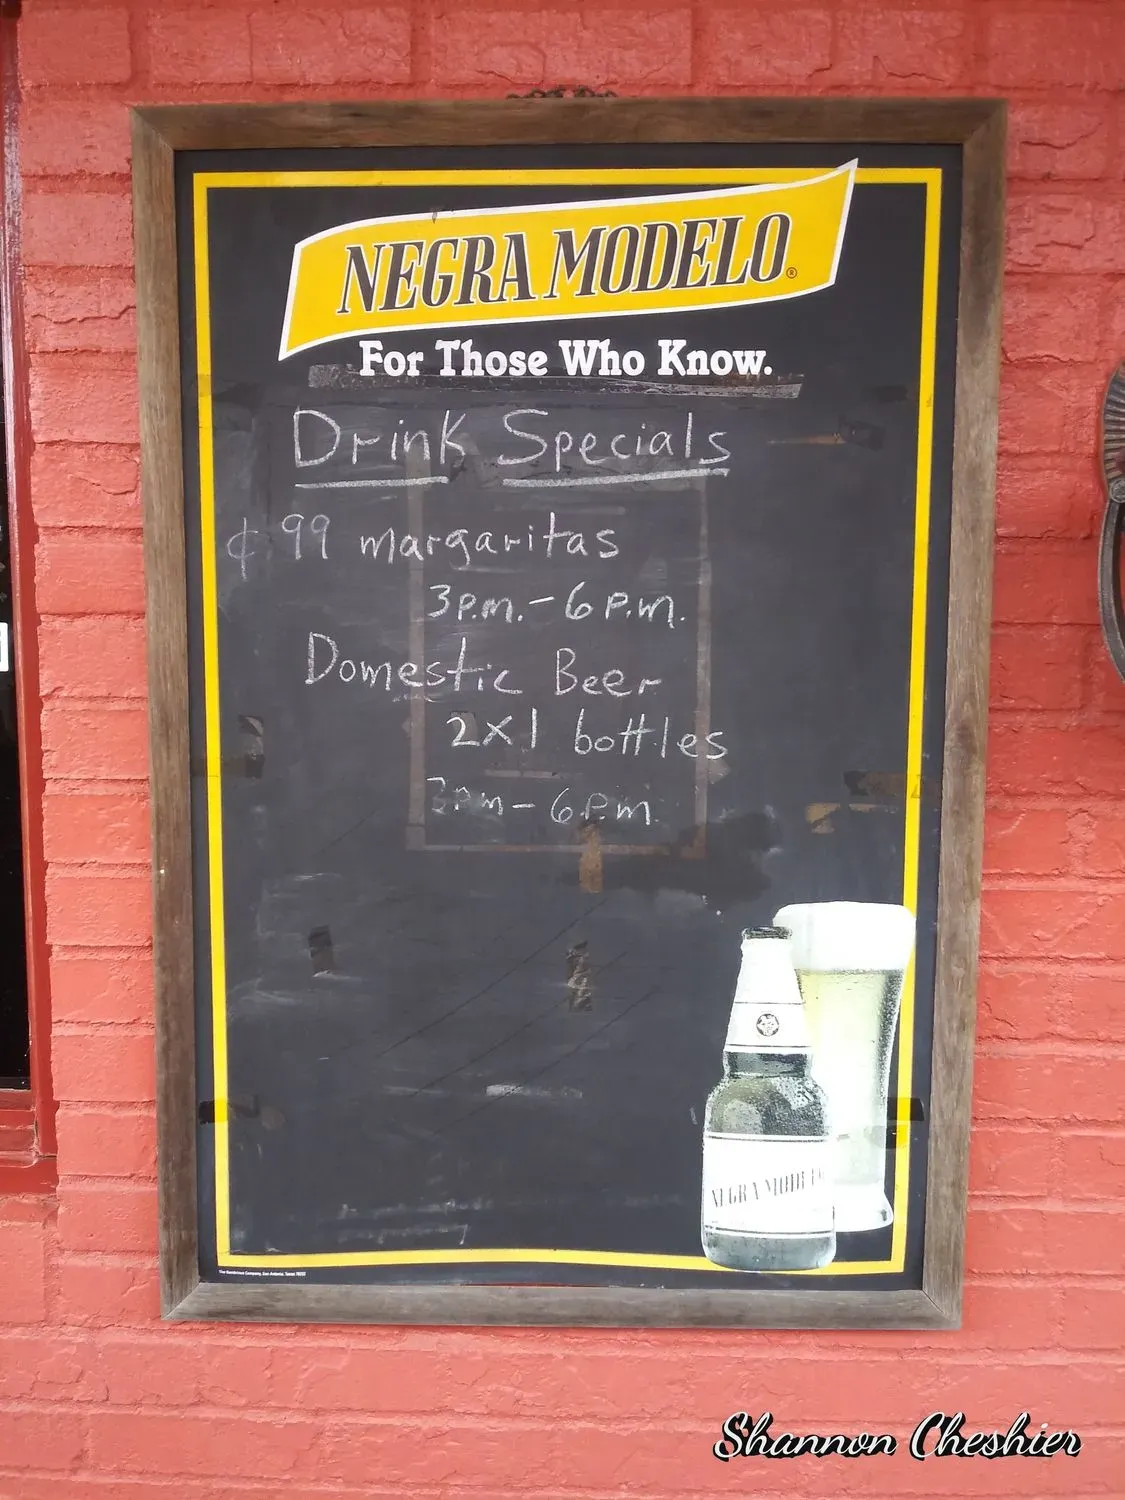 NEGRA MODELO®
For Those Who Know.
Drink Specials
¢99 margaritas
3p.m.-6p.m.
Domestic Beer
2x1 bottles
3pm-6p.m.
NEGRA MODELO
The Gambrinus Company, San Antonio, Texas 78232
Shannon Cheshier